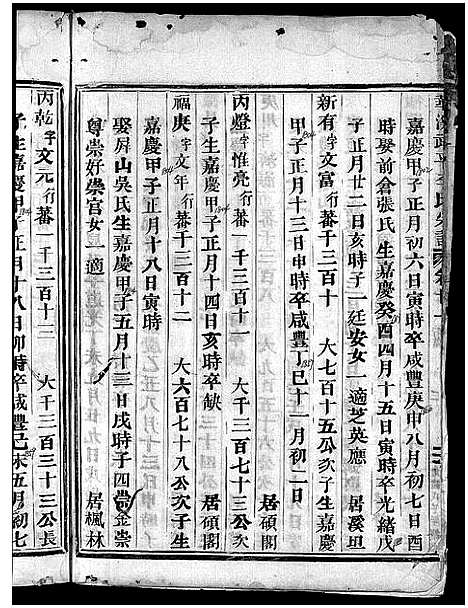 嘉慶甲子正月初六日寅時卒咸豐庚申八月初七日酉
時娶前倉張氏生嘉慶癸四四月十五日寅時卒光緒戊
子正月廿二日亥時子一廷安女一適芝英應 居溪坦
新有字文富行蕃千三百十 大七百十五公次子生嘉慶
甲子正月十三日申時卒咸豐丁巳十一月初二日
居碩閣
丙燈字惟亮行蕃千三百十一 大千三百七十三公次
子生嘉慶甲子正月十四日亥時卒缺 居碩閣
福庚字文年行蕃千三百十二 大六百七十八公次子生
嘉慶甲子正月十八日寅時
娶屏山吳氏生嘉慶甲子五月十三日戌時子四 金崇
尊崇好崇官女一適 居楓林
丙乾字文元行蕃一千三百十三 大千三百三十三公長
子生嘉慶甲子正月十八日卯時卒咸豐己未五月初七